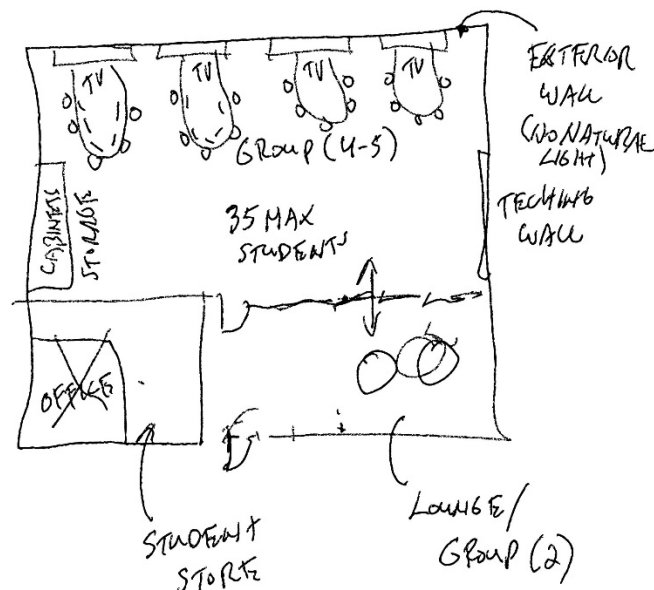 TV
TV
TV
TV
EXTERIOR
WALL
(NO NATURAL
LIGHT)
GROUP (4-5)
CABINETS
STORAGE
35 MAX
STUDENTS
TECHING
WALL
OFFICE
STUDENT
STORE
LOUNGE/
GROUP (2)